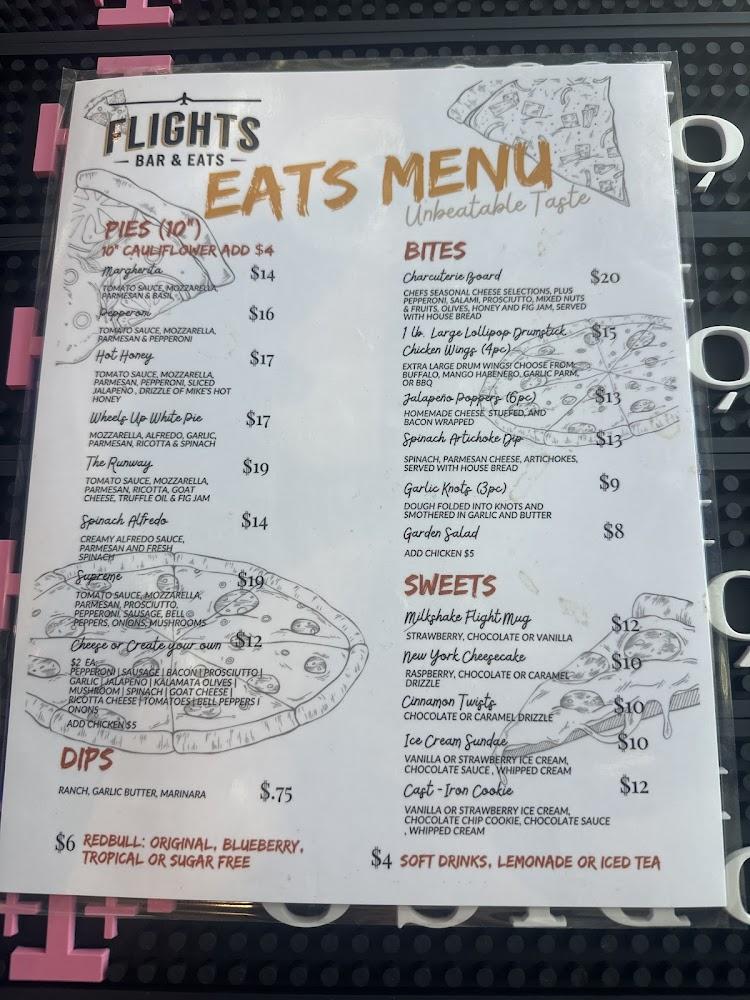 FLIGHTS
BAR & EATS
EATS MENU
Unbeatable Taste
PIES (10")
10" CAULIFLOWER ADD $4
Margherita $14
TOMATO SAUCE, MOZZARELLA,
PARMESAN & BASIL
Pepperoni $16
TOMATO SAUCE, MOZZARELLA,
PARMESAN & PEPPERONI
Hot Honey $17
TOMATO SAUCE, MOZZARELLA,
PARMESAN, PEPPERONI, SLICED
JALAPEÑO , DRIZZLE OF MIKE'S HOT
HONEY
Wheels Up White Pie $17
MOZZARELLA, ALFREDO, GARLIC,
PARMESAN, RICOTTA & SPINACH
The Runway $19
TOMATO SAUCE, MOZZARELLA,
PARMESAN, RICOTTA, GOAT
CHEESE, TRUFFLE OIL & FIG JAM
Spinach Alfredo $14
CREAMY ALFREDO SAUCE,
PARMESAN AND FRESH
SPINACH
Supreme $19
TOMATO SAUCE, MOZZARELLA,
PARMESAN, PROSCIUTTO,
PEPPERONI, SAUSAGE, BELL
PEPPERS, ONIONS, MUSHROOMS
Cheese or Create your own $12
$2 EA
PEPPERONI | SAUSAGE | BACON | PROSCIUTTO |
GARLIC | JALAPENO | KALAMATA OLIVES |
MUSHROOM | SPINACH | GOAT CHEESE |
RICOTTA CHEESE | TOMATOES | BELL PEPPERS |
ONONS
ADD CHICKEN $5
DIPS
RANCH, GARLIC BUTTER, MARINARA $.75
$6 REDBULL: ORIGINAL, BLUEBERRY,
TROPICAL OR SUGAR FREE
BITES
Charcuterie Board $20
CHEFS SEASONAL CHEESE SELECTIONS, PLUS
PEPPERONI, SALAMI, PROSCIUTTO, MIXED NUTS
& FRUITS, OLIVES, HONEY AND FIG JAM, SERVED
WITH HOUSE BREAD
1 Lb. Large Lollipop Drumstick $15
Chicken Wings (4pc)
EXTRA LARGE DRUM WINGS! CHOOSE FROM
BUFFALO, MANGO HABENERO, GARLIC PARM,
OR BBQ
Jalapeño Poppers (6pc) $13
HOMEMADE CHEESE STUFFED, AND
BACON WRAPPED
Spinach Artichoke Dip $13
SPINACH, PARMESAN CHEESE, ARTICHOKES,
SERVED WITH HOUSE BREAD
Garlic Knots (3pc) $9
DOUGH FOLDED INTO KNOTS AND
SMOTHERED IN GARLIC AND BUTTER
Garden Salad $8
ADD CHICKEN $5
SWEETS
Milkshake Flight Mug $12
STRAWBERRY, CHOCOLATE OR VANILLA
New York Cheesecake $10
RASPBERRY, CHOCOLATE OR CARAMEL
DRIZZLE
Cinnamon Twists $10
CHOCOLATE OR CARAMEL DRIZZLE
Ice Cream Sundae $10
VANILLA OR STRAWBERRY ICE CREAM,
CHOCOLATE SAUCE , WHIPPED CREAM
Cast-Iron Cookie $12
VANILLA OR STRAWBERRY ICE CREAM,
CHOCOLATE CHIP COOKIE, CHOCOLATE SAUCE
, WHIPPED CREAM
$4 SOFT DRINKS, LEMONADE OR ICED TEA